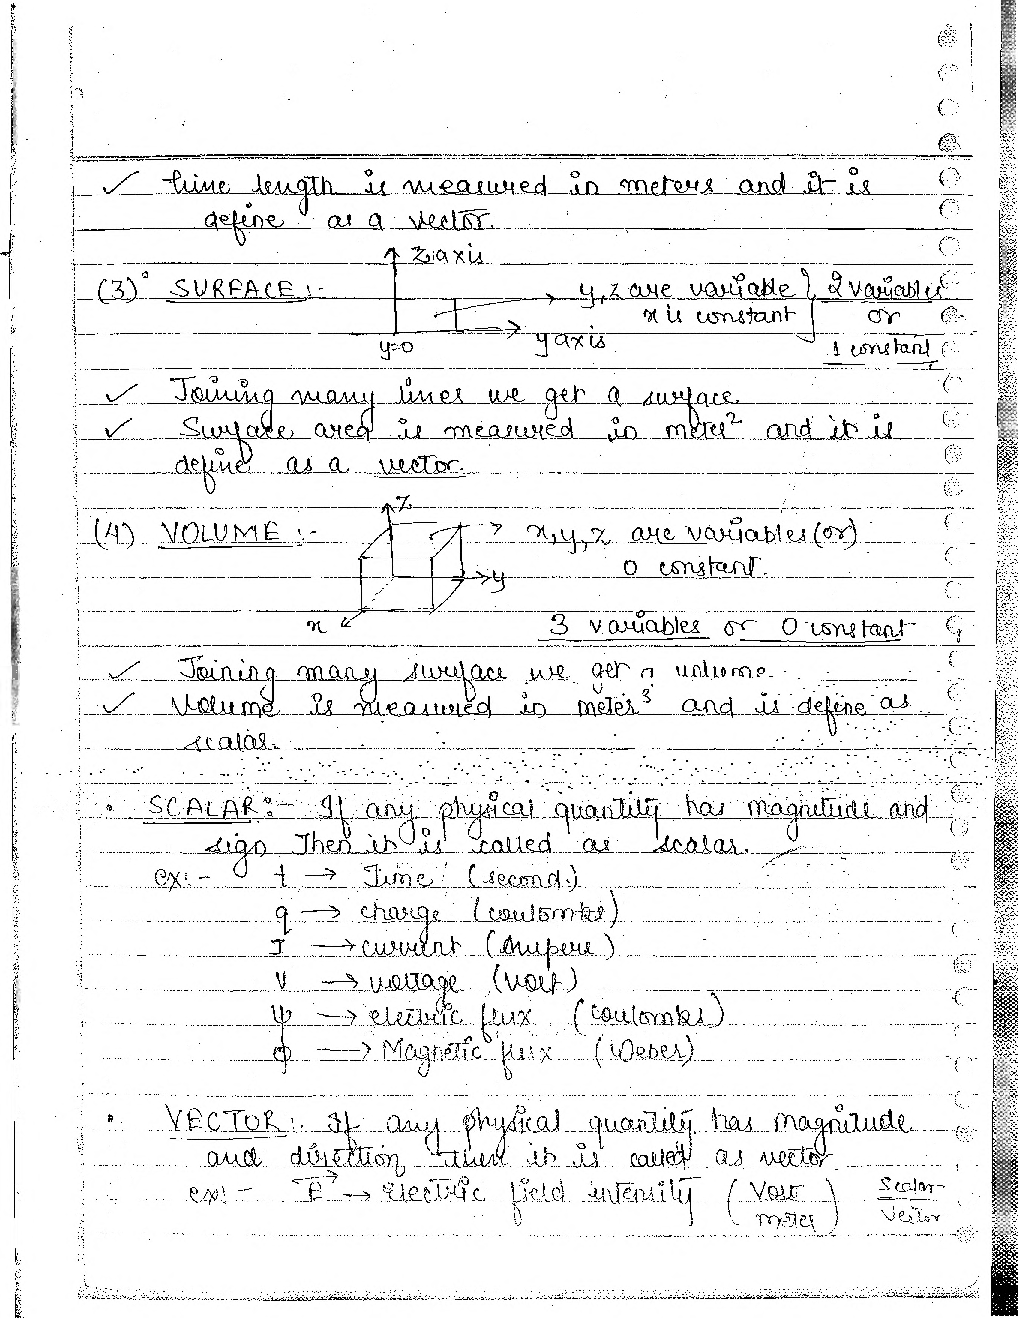 ✓ Line length is measured in meters and it is
define as a vector.
z axis
(3) SURFACE :-
y,z are variable } 2 variables
x is constant
or
y=0
y axis
1 constant
✓ Joining many lines we get a surface
✓ Surface area is measured in meter² and it is
define as a vector.
z
(4) VOLUME :-
x,y,z are variables (or)
0 constant.
y
x
3 variables or 0 constant
✓ Joining many surface we get a volume.
✓ Volume is measured in meter³ and is define as
scalar.
• SCALAR :- If any physical quantity has magnitude and
sign Then it is called as scalar.
ex:- t → Time (second.)
q → charge (coulombs)
I → current (Ampere)
V → voltage (volt)
ψ → electric flux (coulombs)
ϕ → Magnetic flux (Weber)
• VECTOR :- If any physical quantity has magnitude
and direction then it is called as vector
ex:- E⃗ → Electric field intensity (Volt/meter) Scalar/Vector